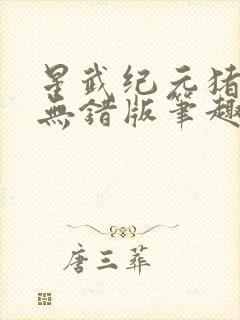 星武纪元猪
無错版筆趣
唐三葬